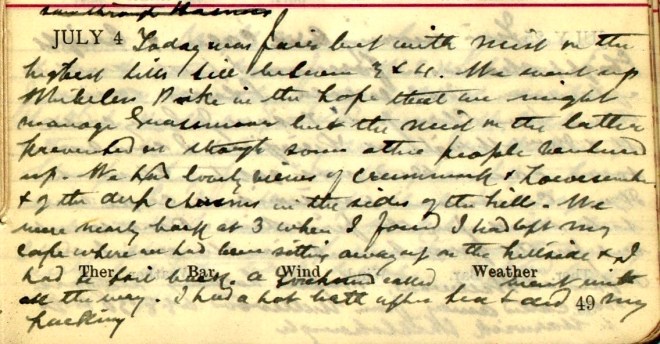 saw through
JULY 4 Today was fair but with mist on the
highest hills till between 3 & 4. We went up
Whiteless Pike in the hope that we might
manage Grassmoor but the mist on the latter
prevented us though some other people ventured
up. We had lovely views of Crummock & Loweswater
& of the deep chasms in the sides of the hills. We
were nearly back at 3 when I found I had left my
cape where we had been sitting away up on the hillside & I
had to toil back. A called went with
Ther Bar Wind Weather
all the way. I had a hot bath after tea & did my
49
packing